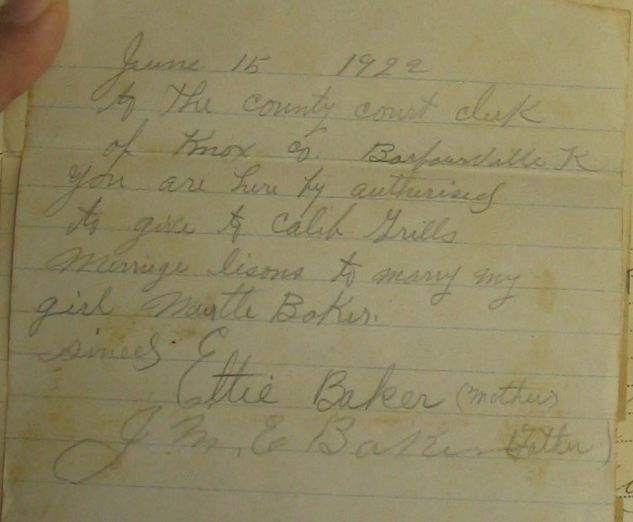 June 15 1922
to The county court clerk
of Knox Co. Barbourville K
You are here by autherised
to give to Caleb Grills
Merrige lisons to marry my
girl Murtle Baker.
sined
Ettie Baker (Mother)
J M. E Baker (Father)